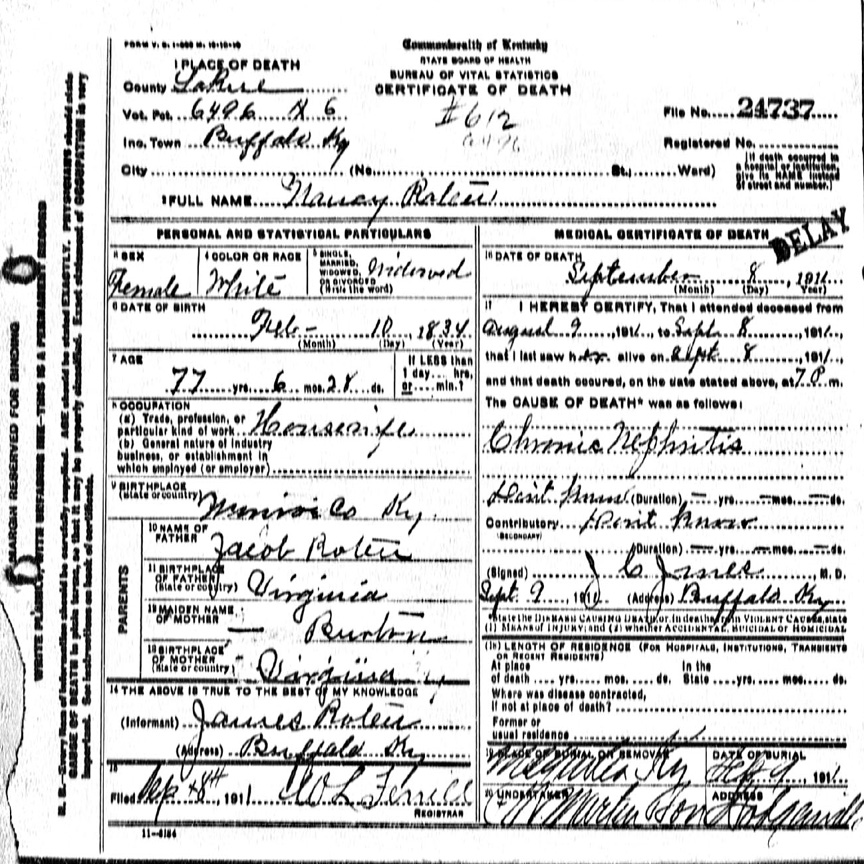 FORM V. S. 1-
Commonwealth of Kentucky
STATE BOARD OF HEALTH
BUREAU OF VITAL STATISTICS
CERTIFICATE OF DEATH
1 PLACE OF DEATH
County LaRue
Vot. Pct. 6496 N 6
#612
File No. 24737
Inc. Town Buffalo Ky
Registered No.
City (No. St.; Ward)
(If death occurred in a hospital or institution, give its NAME instead of street and number.)
2 FULL NAME Nancy Roten
PERSONAL AND STATISTICAL PARTICULARS
3 SEX
Female
4 COLOR OR RACE
White
5 SINGLE, MARRIED, WIDOWED OR DIVORCED (Write the word)
Widowed
6 DATE OF BIRTH
Feb- 10, 1834
(Month) (Day) (Year)
7 AGE
77 yrs. 6 mos. 28 ds.
If LESS than 1 day... hrs. or... min.?
8 OCCUPATION
(a) Trade, profession, or particular kind of work Housewife
(b) General nature of industry business, or establishment in which employed (or employer)
9 BIRTHPLACE
(State or country) Monroe Co Ky.
PARENTS
10 NAME OF FATHER Jacob Roten
11 BIRTHPLACE OF FATHER (State or country) Virginia
12 MAIDEN NAME OF MOTHER — Burton
13 BIRTHPLACE OF MOTHER (State or country) Virginia
14 THE ABOVE IS TRUE TO THE BEST OF MY KNOWLEDGE
(Informant) James Roten
(Address) Buffalo Ky
15
Filed Sep 8th, 1911 W L Ferrill
REGISTRAR
11-6184
MEDICAL CERTIFICATE OF DEATH
DELAY
16 DATE OF DEATH
September 8, 1911
(Month) (Day) Year)
17 I HEREBY CERTIFY, That I attended deceased from
August 9, 1911, to Sept. 8, 1911,
that I last saw her alive on Sept. 8, 1911,
and that death occured, on the date stated above, at 7 P. m.
The CAUSE OF DEATH* was as follows:
Chronic Nephritis
Don't know (Duration) — yrs. — mos. — ds.
Contributory Don't know
(SECONDARY)
(Duration) — yrs. — mos. — ds.
(Signed) J C Jones M. D.
Sept. 9, 1911 (Address) Buffalo Ky
*State the DISEASE CAUSING DEATH, or, in deaths from VIOLENT CAUSES, state
(1) MEANS OF INJURY; and (2) whether ACCIDENTAL, SUICIDAL or HOMICIDAL
18 LENGTH OF RESIDENCE (FOR HOSPITALS, INSTITUTIONS, TRANSIENTS OR RECENT RESIDENTS)
At place of death yrs. mos. ds. In the State yrs. mos. ds.
Where was disease contracted,
if not at place of death?
Former or
usual residence
19 PLACE OF BURIAL OR REMOVAL
Ky
DATE OF BURIAL
Sep 9, 1911
20 UNDERTAKER
Martin Son
ADDRESS
Hodgenville
MARGIN RESERVED FOR BINDING